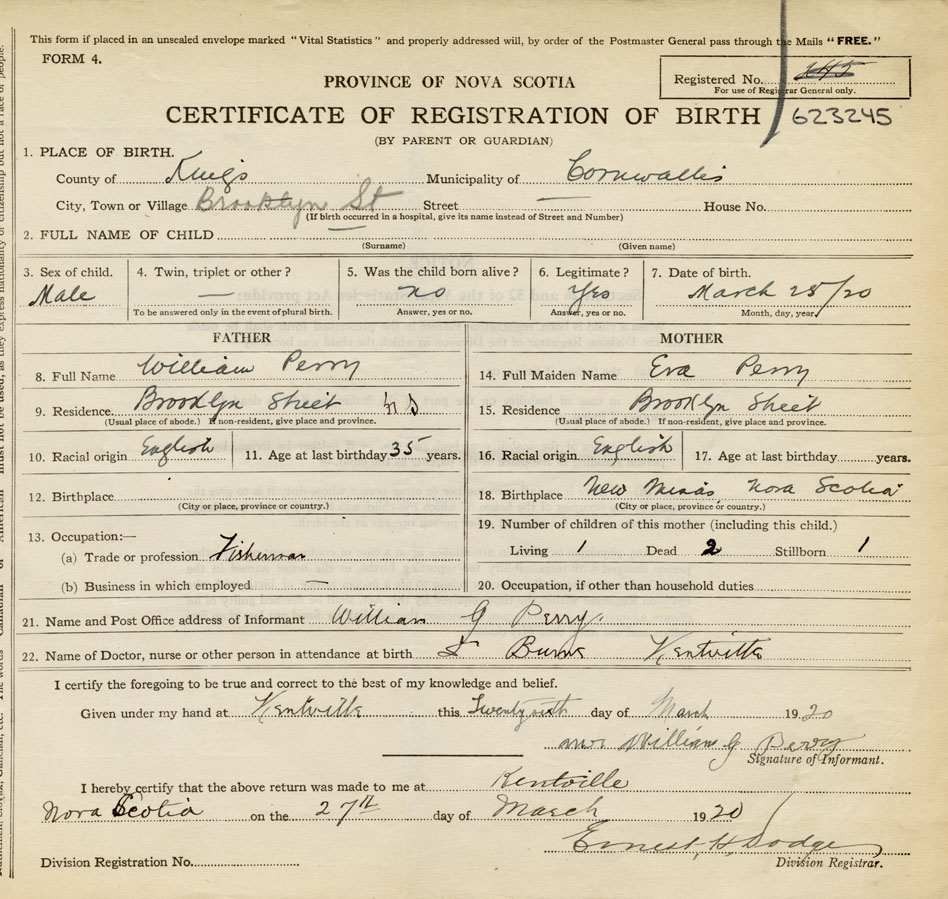 This form if placed in an unsealed envelope marked "Vital Statistics" and properly addressed will, by order of the Postmaster General pass through the Mails "FREE."
FORM 4.
PROVINCE OF NOVA SCOTIA
Registered No.
For use of Registrar General only.
CERTIFICATE OF REGISTRATION OF BIRTH 623245
(BY PARENT OR GUARDIAN)
1. PLACE OF BIRTH.
County of Kings Municipality of Cornwallis
City, Town or Village Brooklyn St Street — House No.
(If birth occurred in a hospital, give its name instead of Street and Number)
2. FULL NAME OF CHILD —
(Surname) (Given name)
3. Sex of child. 4. Twin, triplet or other? 5. Was the child born alive? 6. Legitimate? 7. Date of birth.
Male — no Yes March 25/20
To be answered only in the event of plural birth. Answer, yes or no. Answer, yes or no. Month, day, year.
FATHER MOTHER
8. Full Name William Perry 14. Full Maiden Name Eva Perry
9. Residence Brooklyn Street N S 15. Residence Brooklyn Street
(Usual place of abode.) If non-resident, give place and province. (Usual place of abode.) If non-resident, give place and province.
10. Racial origin English 11. Age at last birthday 35 years. 16. Racial origin English 17. Age at last birthday years.
12. Birthplace 18. Birthplace New Minas, Nova Scotia
(City or place, province or country.) (City or place, province or country.)
13. Occupation:— 19. Number of children of this mother (including this child.)
(a) Trade or profession Fisherman Living 1 Dead 2 Stillborn 1
(b) Business in which employed — 20. Occupation, if other than household duties
21. Name and Post Office address of Informant William G Perry.
22. Name of Doctor, nurse or other person in attendance at birth Burns Kentville
I certify the foregoing to be true and correct to the best of my knowledge and belief.
Given under my hand at Kentville this Twenty sixth day of March 1920
mrs William G Perry
Signature of Informant.
I hereby certify that the above return was made to me at Kentville
Nova Scotia on the 27th day of March 1920
Ernest H Dodge
Division Registration No. Division Registrar.